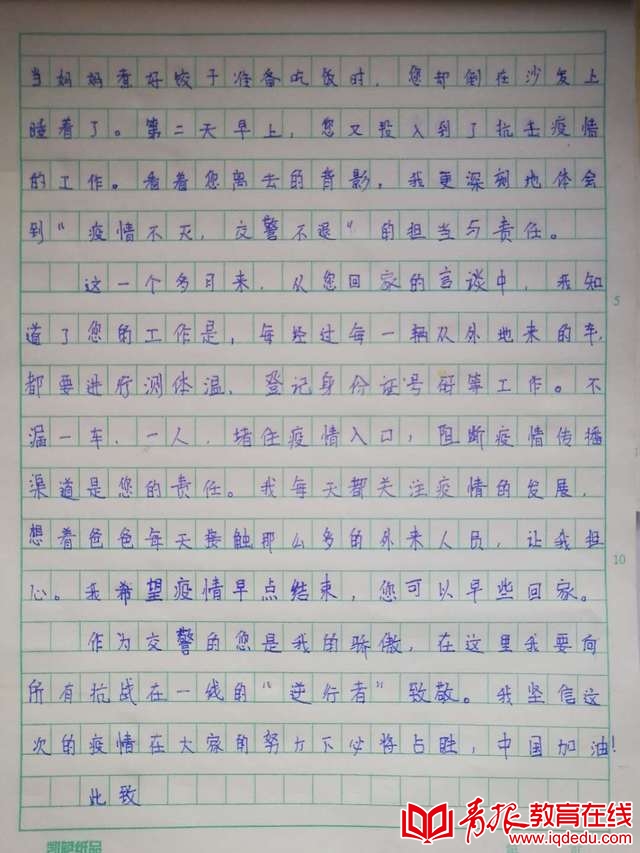 当妈妈煮好饺子准备吃饭时，您却倒在沙发上
睡着了。第二天早上，您又投入到了抗击疫情
的工作。看着您离去的背影，我更深刻地体会
到“疫情不灭，交警不退”的担当与责任。
这一个多月来，从您回家的言谈中，我知
道了您的工作是，每经过每一辆从外地来的车，
都要进行测体温、登记身份证号码等工作。不
漏一车、一人，堵住疫情入口，阻断疫情传播
渠道是您的责任。我每天都关注疫情的发展，
想着爸爸每天接触那么多的外来人员，让我担
心。我希望疫情早点结束，您可以早些回家。
作为交警的您是我的骄傲，在这里我要向
所有抗战在一线的“逆行者”致敬。我坚信这
次的疫情在大家的努力下必将占胜，中国加油！
此致
5
10
凯丽纸品
青报教育在线
www.iqdedu.com